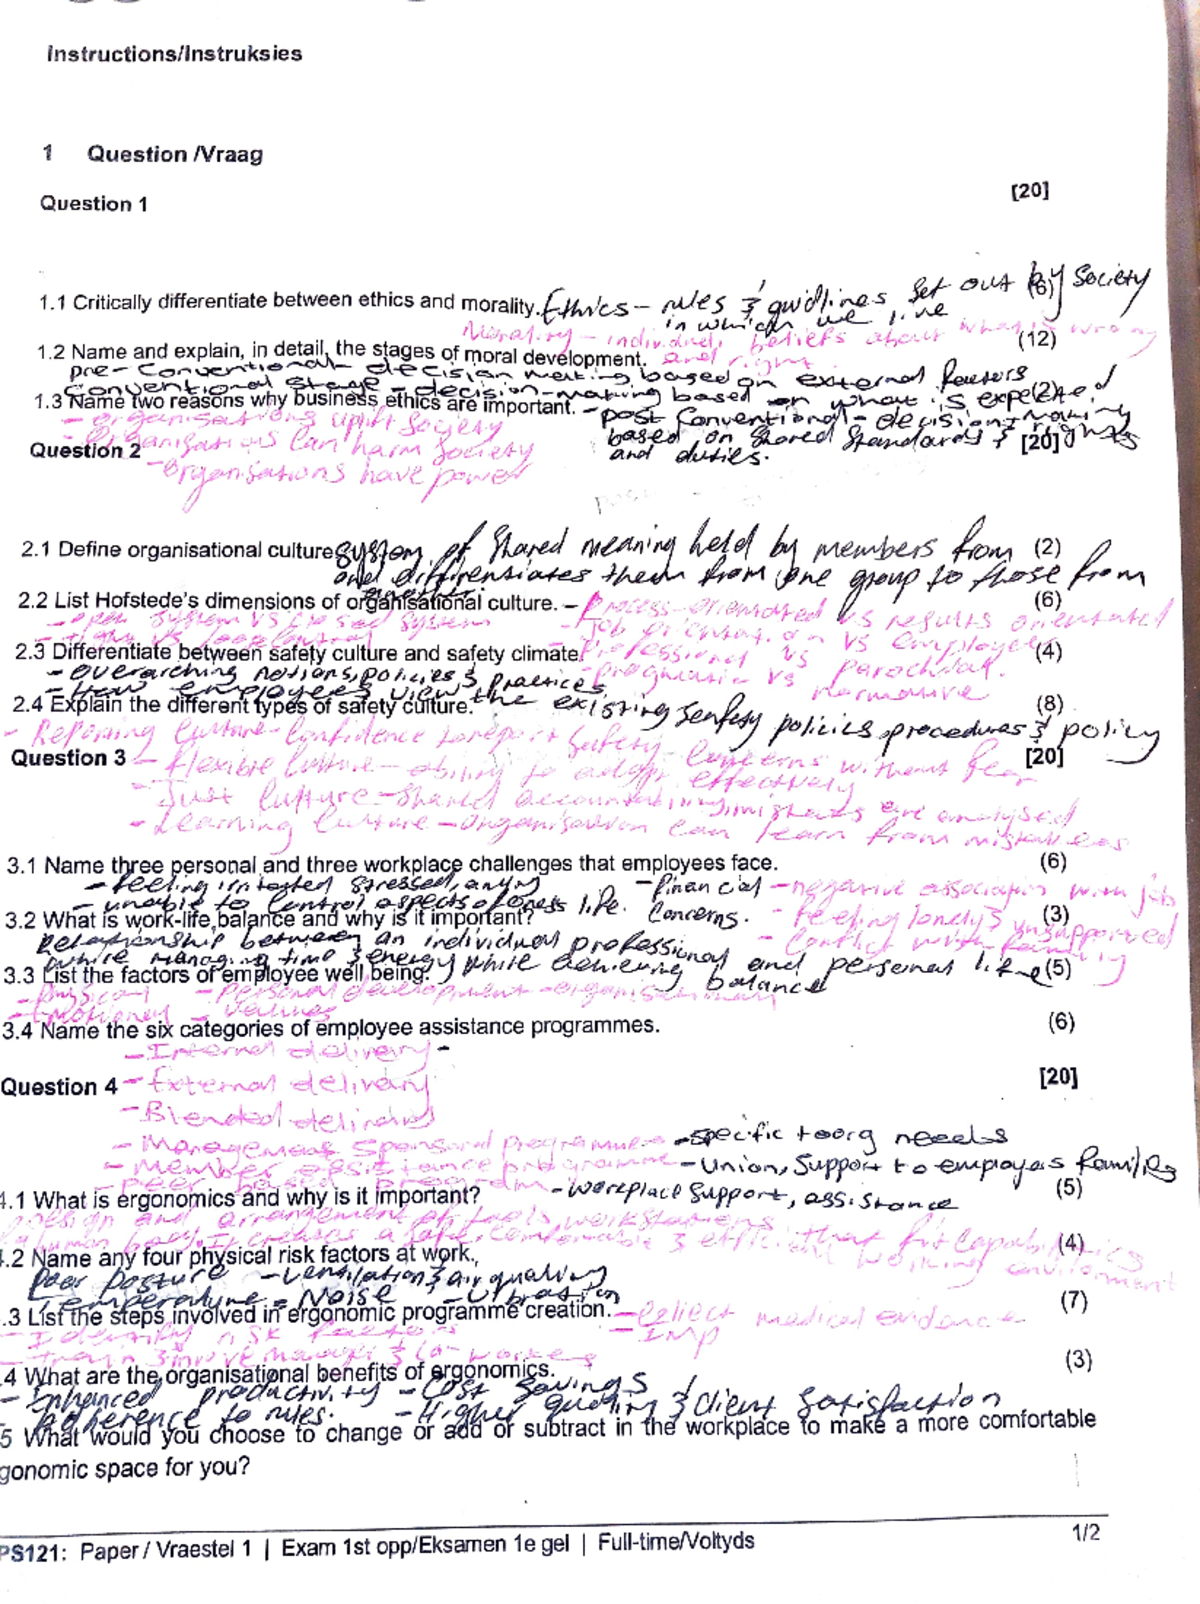 Instructions/Instruksies
1 Question /Vraag
[20]
Question 1
1.1 Critically differentiate between ethics and morality. Ethics - rules & guidlines set out by Society (6)
in which we live
Morality - individual beliefs about what is wrong
and right.
1.2 Name and explain, in detail, the stages of moral development. (12)
pre-conventional - decision making based on external factors
conventional stage - decision-making based on what is expected
1.3 Name two reasons why business ethics are important. (2)
- post conventional - decision-making
based on shared standards & rights
and duties.
- organisations uplift society
- organisations can harm society
- organisations have power
Question 2 [20]
2.1 Define organisational culture system of shared meaning held by members from (2)
and differentiates them from one group to those from
another.
2.2 List Hofstede's dimensions of organisational culture. - Process-orientated vs results orientated (6)
- open system vs closed system
- Job orientation vs employee
- tight vs loose control
2.3 Differentiate between safety culture and safety climate. (4)
- Professional vs parochial.
- pragmatic vs normative
- overarching notions, policies & practices
- How employees view the existing safety policies procedures & policy
2.4 Explain the different types of safety culture. (8)
- Reporting Culture - Confidence to report safety concerns without fear
Question 3 [20]
- flexible culture - ability to adapt effectively
- Just culture - shared accountability, mistakes are analysed
- Learning culture - organisation can learn from mistakes
3.1 Name three personal and three workplace challenges that employees face. (6)
- feeling irritated stressed, angry
- financial concerns.
- negative association with job
- unable to control aspects of ones life.
- feeling lonely & unsupported
- conflict with family
3.2 What is work-life balance and why is it important? (3)
Relationship between an individual professional and personal life
while managing time & energy while achieving balance
3.3 List the factors of employee well being. (5)
- Physical - personal development - organisational
- Emotional - values
3.4 Name the six categories of employee assistance programmes. (6)
- Internal delivery -
Question 4 [20]
- External delivery
- Blended delivery
- Management sponsored programme - specific to org needs
- Member assistance programme - union, support to employees families
- peer based program - workplace support, assistance
4.1 What is ergonomics and why is it important? (5)
Design and arrangement of tools, workstations that fit capabilities
human body. It creates a safe, comfortable & efficient working environment
4.2 Name any four physical risk factors at work. (4)
Poor posture - ventilation & air quality
Temperature - Noise - vibration
.3 List the steps involved in ergonomic programme creation. (7)
- collect medical evidence
- IMP
- Identify risk factors
- train & improve manager & co-workers
.4 What are the organisational benefits of ergonomics. (3)
- Enhanced productivity - Cost savings
- Adherence to rules. - Higher quality & client satisfaction
5 What would you choose to change or add or subtract in the workplace to make a more comfortable
gonomic space for you?
PS121: Paper / Vraestel 1 | Exam 1st opp/Eksamen 1e gel | Full-time/Voltyds
1/2